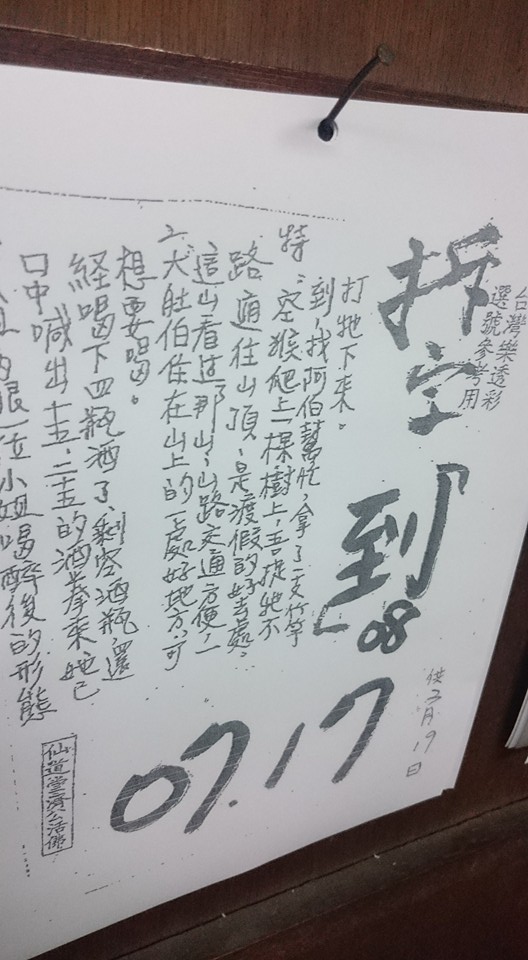 台灣樂透彩
選號參考用
拆字「到」
08
07.17
供3月19日
打牠下來。
到,找阿伯幫忙,拿了一支竹竿
特:空猴爬上一棵樹上,吾捉牠不
路通往山頂,是渡假的好去處,
這山看过那山,山路交通方便,一
二犬肚伯住在山上的一處好地方,可
想要喝。
経喝下四瓶酒了,剩空酒瓶,還
口中喊出十五、二十五的酒拳來,她已
的眼一位小姐喝醉後的形態
仙道堂濟公活佛